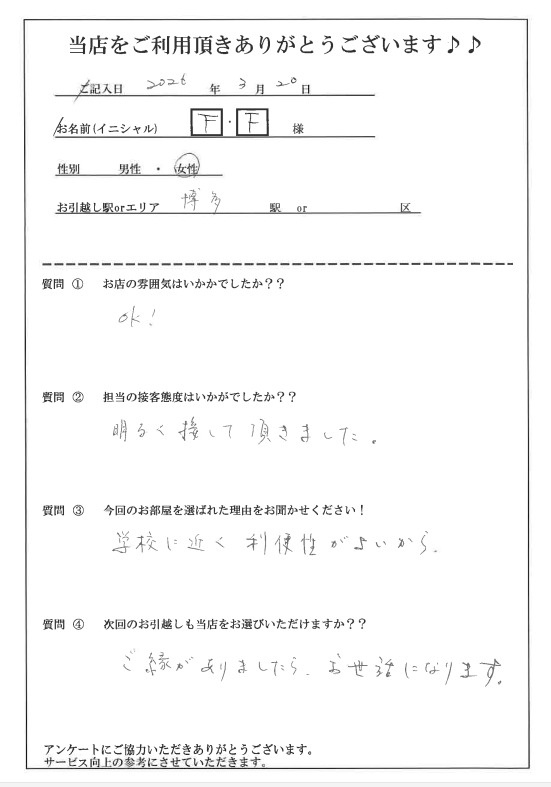 当店をご利用頂きありがとうございます♪♪
ご記入日 2026 年 3 月 20 日
お名前(イニシャル) F・F 様
性別 男性 ・ 女性
お引越し駅orエリア 博多 駅 or 区
質問 ① お店の雰囲気はいかかでしたか??
OK!
質問 ② 担当の接客態度はいかがでしたか??
明るく接して頂きました。
質問 ③ 今回のお部屋を選ばれた理由をお聞かせください!
学校に近く利便性がよいから。
質問 ④ 次回のお引越しも当店をお選びいただけますか??
ご縁がありましたら、お世話になります。
アンケートにご協力いただきありがとうございます。
サービス向上の参考にさせていただきます。